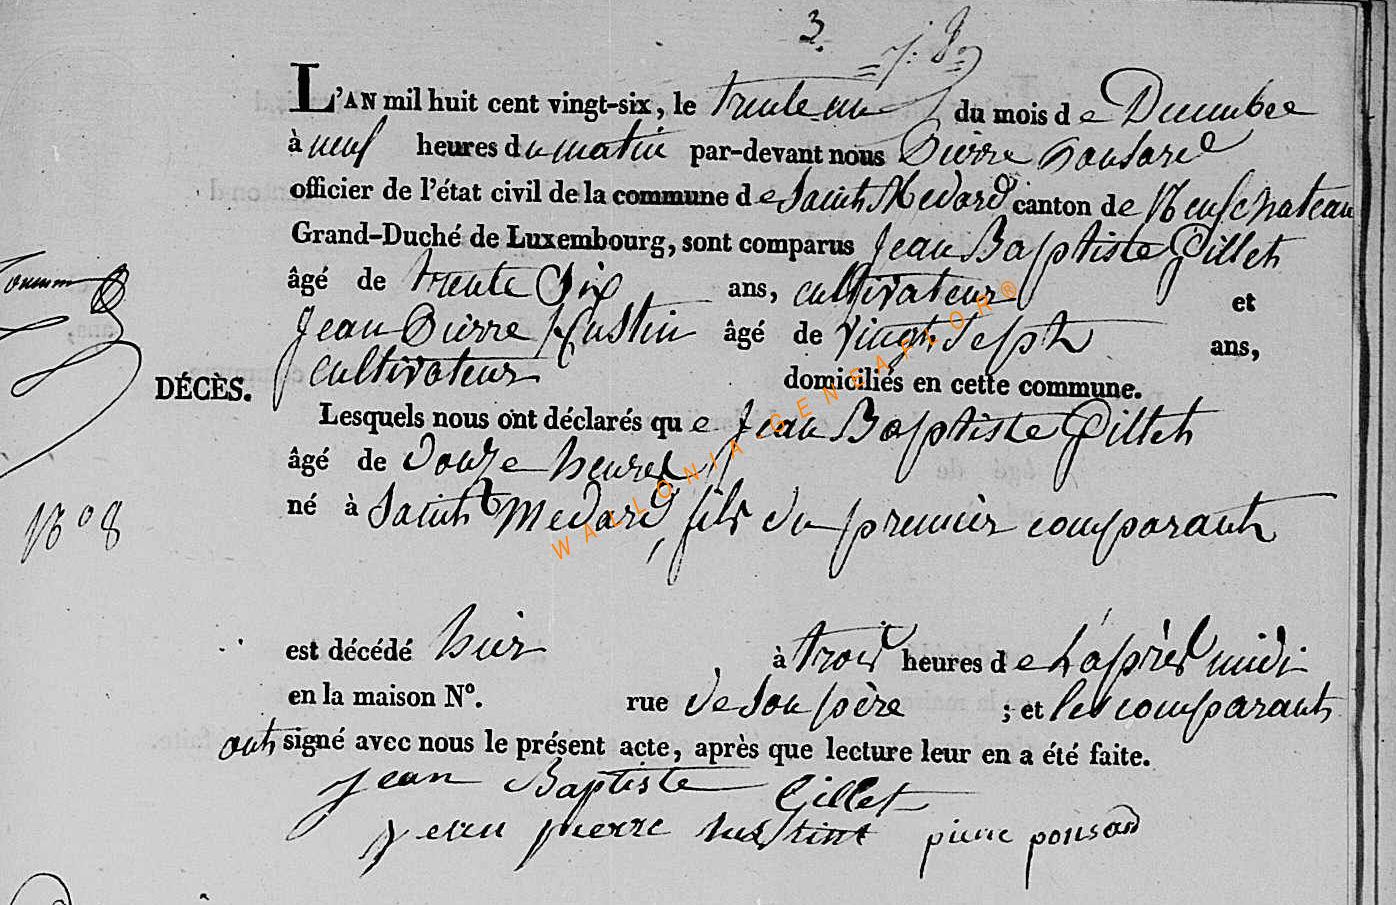 3.
L'AN mil huit cent vingt-six, le trente un du mois de Decembre
à neuf heures du matin par-devant nous Pierre Ponsard
officier de l'état civil de la commune de Saint Medard canton de Neufchateau
Grand-Duché de Luxembourg, sont comparus Jean Baptiste Gillet
âgé de trente Six ans, cultivateur et
Jean Pierre Hustin âgé de vingt Sept ans,
cultivateur domiciliés en cette commune.
DÉCÈS.
Lesquels nous ont déclarés que Jean Baptiste Gillet
âgé de douze heures
N° 8
né à Saint Medard, fils du premier comparant
est décédé hier à trois heures de L'après midi
en la maison N°. rue de Son père ; et les comparants
ont signé avec nous le présent acte, après que lecture leur en a été faite.
Jean Baptiste Gillet
jean pierre hustint pierre ponsard
WALLONIA GENEAFLOR®